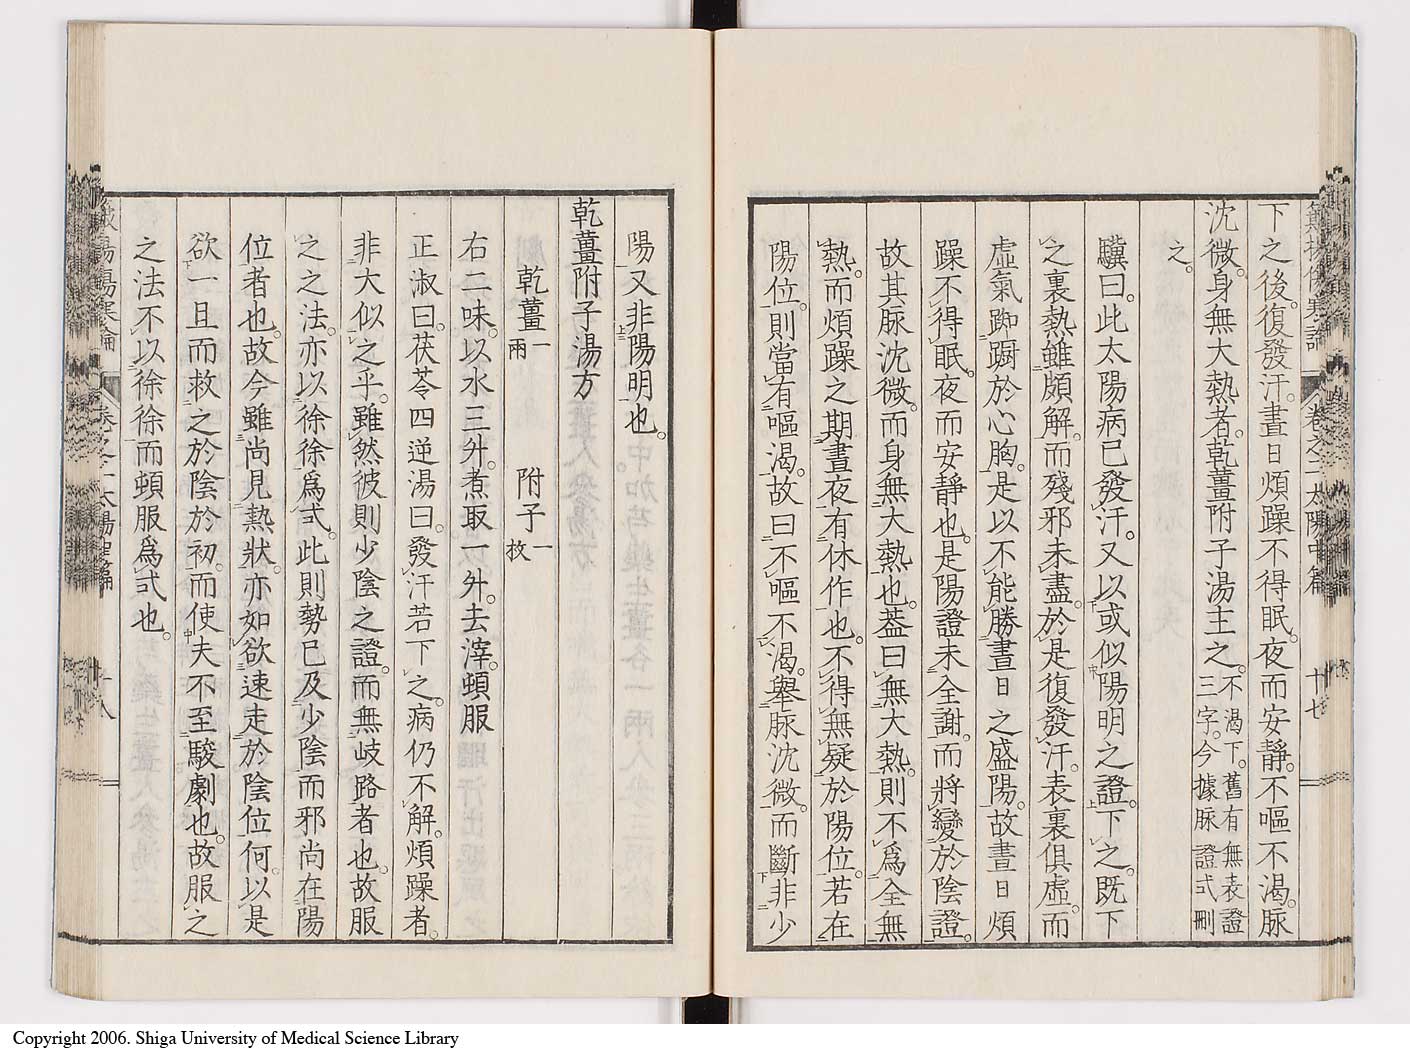 下之後。復發汗。晝日煩躁不得眠。夜而安靜。不嘔不渴。脈
沈微。身無大熱者。乾薑附子湯主之。不渴下。舊有無表證三字。今據脈證式刪
之。
驥曰。此太陽病已發汗。又以或似陽明之證。下之。既下
之裏熱雖頗解。而殘邪未盡。於是復發汗。表裏俱虛。而
虛氣踟躕於心胸。是以不能勝晝日之盛陽。故晝日煩
躁不得眠。夜而安靜也。是陽證未全謝。而將變於陰證。
故其脈沈微。而身無大熱也。蓋曰無大熱。則不爲全無
熱。而煩躁之期。晝夜有休作也。不得無疑於陽位。若在
陽位。則當有嘔渴。故曰不嘔不渴。舉脈沈微。而斷非少
卷之二 太陽中篇 十七
陽又非陽明也。
乾薑附子湯方
乾薑一兩 附子一枚
右二味。以水三升。煮取一升。去滓。頓服
正淑曰。茯苓四逆湯曰。發汗若下之。病仍不解。煩躁者。
非大似之乎。雖然彼則少陰之證。而無岐路者也。故服
之之法。亦以徐徐爲式。此則勢已及少陰而邪尚在陽
位者也。故今雖尚見熱狀。亦如欲速走於陰位何。以是
欲一旦而救之於陰於初。而使夫不至駿劇也。故服之
之法。不以徐徐而頓服爲式也。
Copyright 2006. Shiga University of Medical Science Library